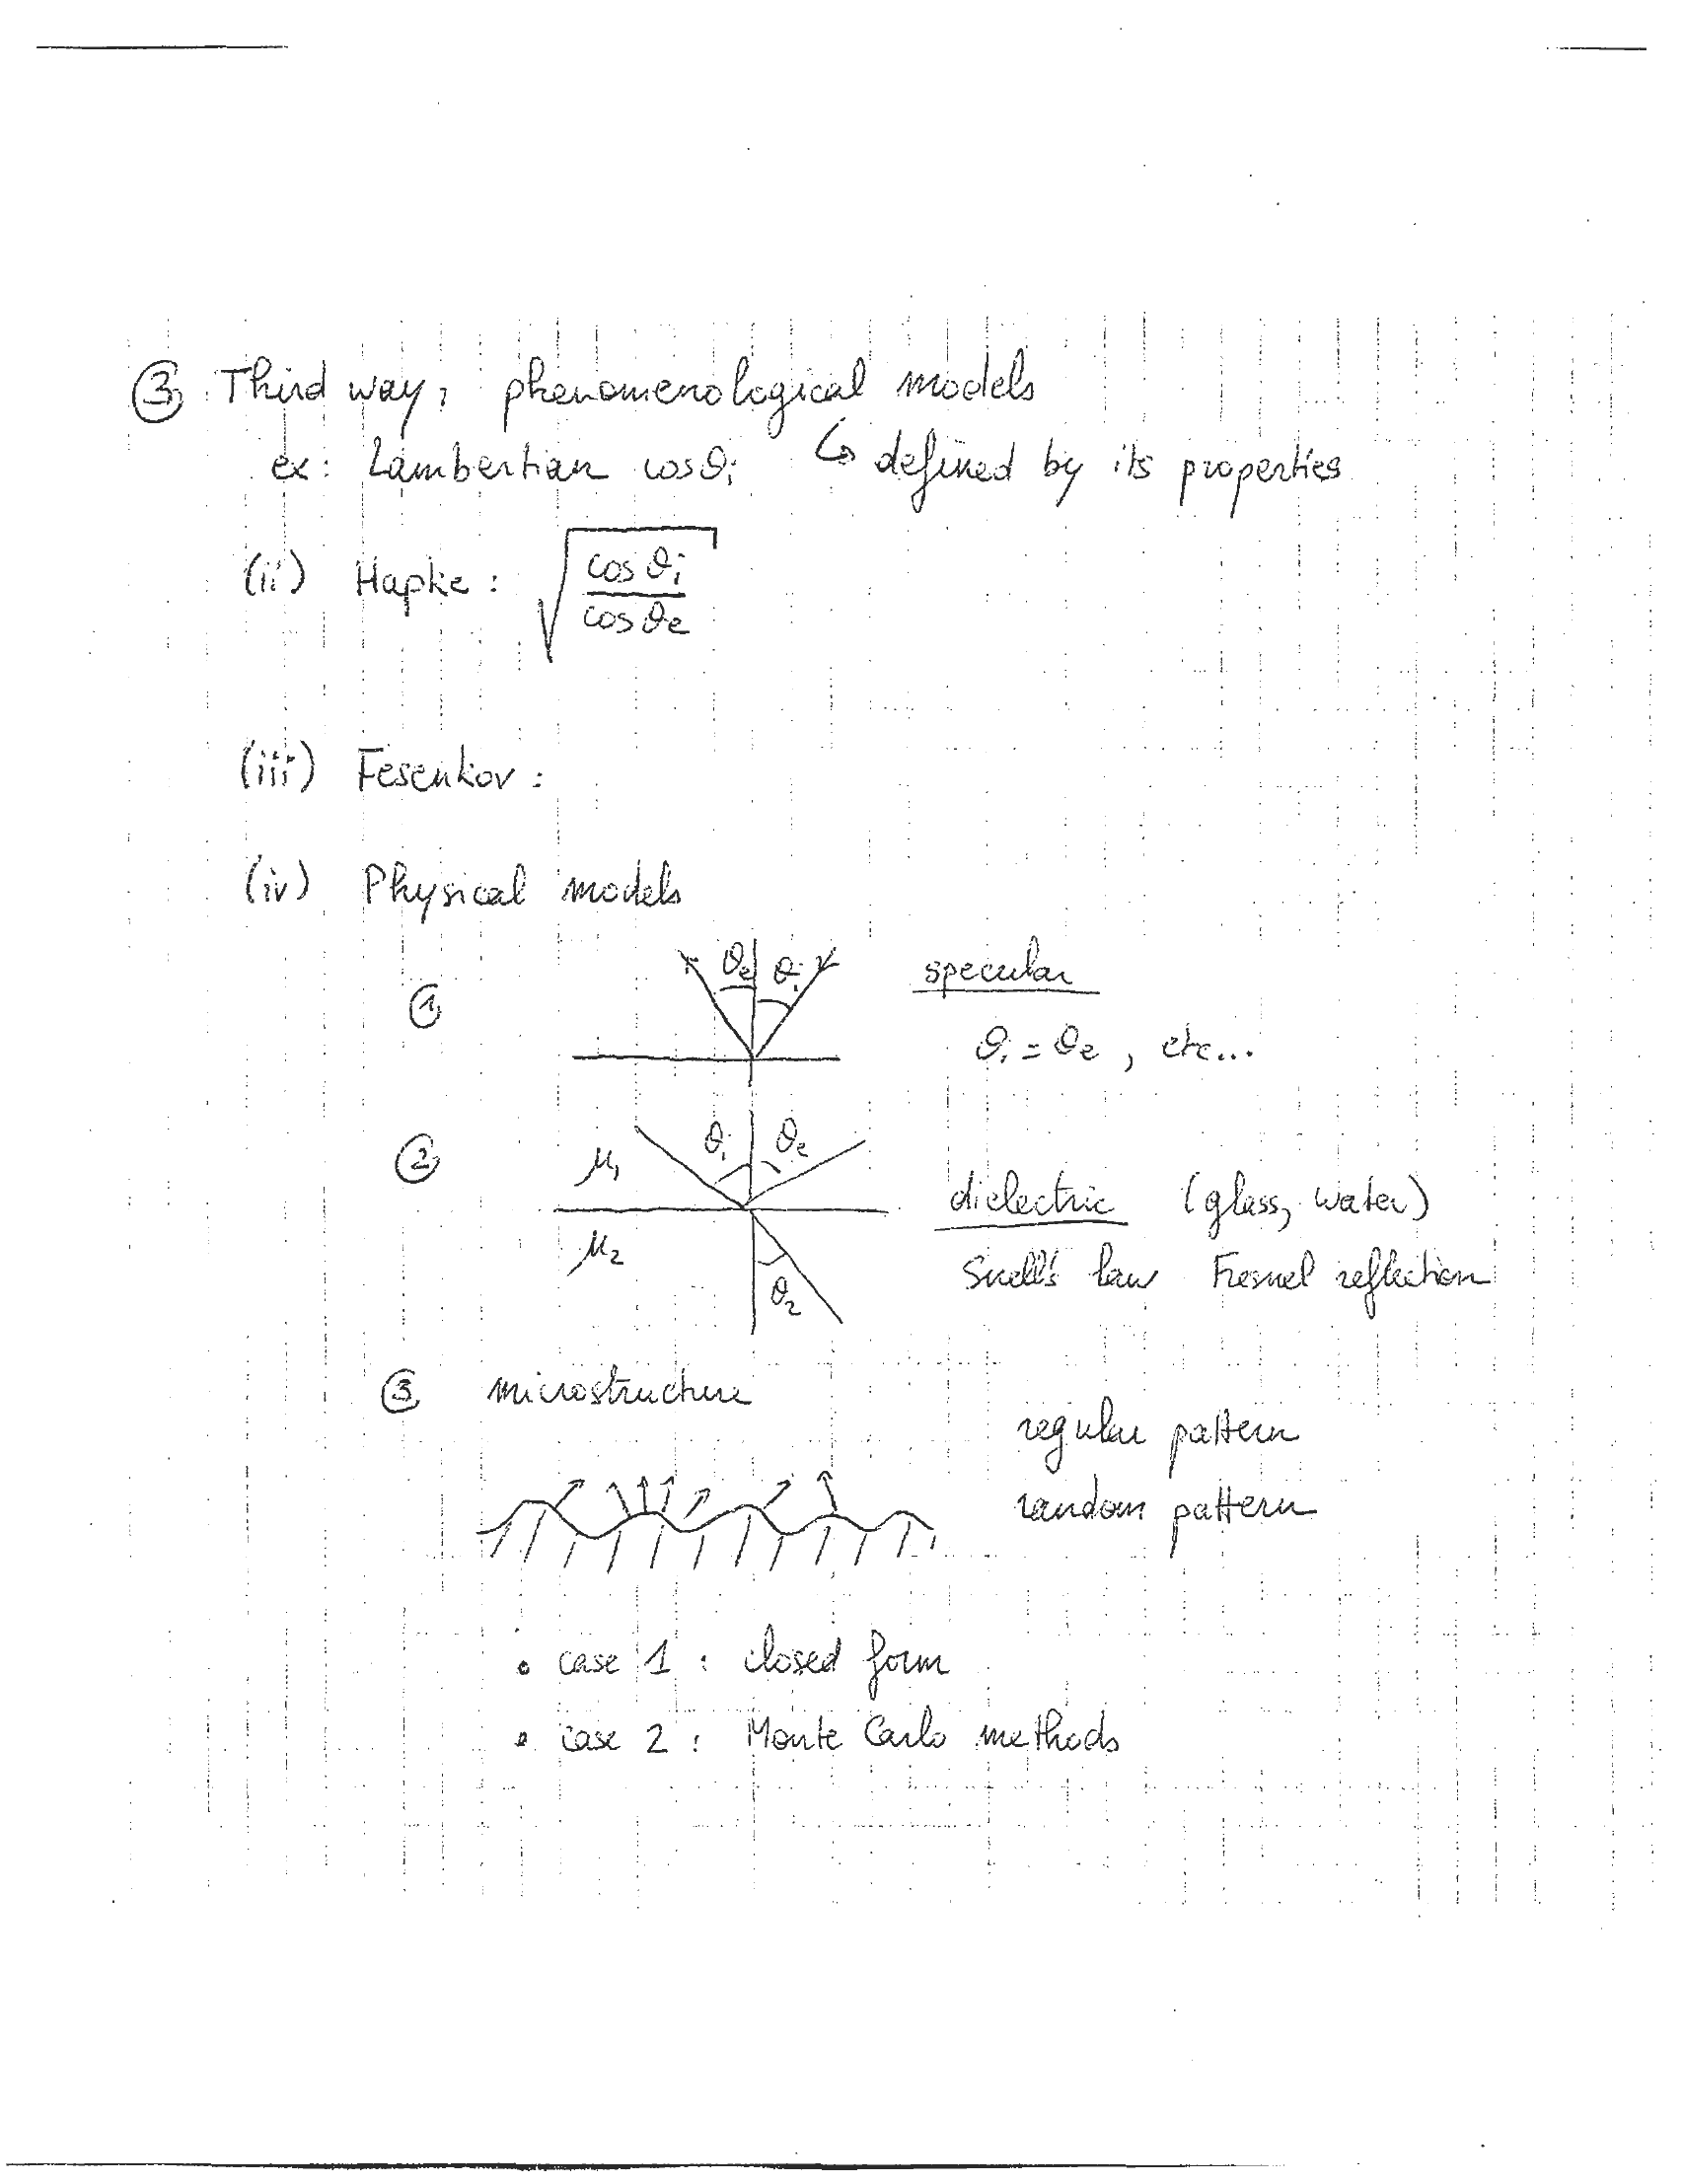 ③ Third way, phenomenological models
ex: Lambertian cosθi ↳ defined by its properties
(ii) Hapke: √(cosθi / cosθe)
(iii) Fesenkov:
(iv) Physical models
① θe θi specular
θi = θe, etc...
② μ1 θi θe
dielectric (glass, water)
μ2 θ2
Snell's law Fresnel reflection
③ microstructure
regular pattern
random pattern
• case 1: closed form
• case 2: Monte Carlo methods